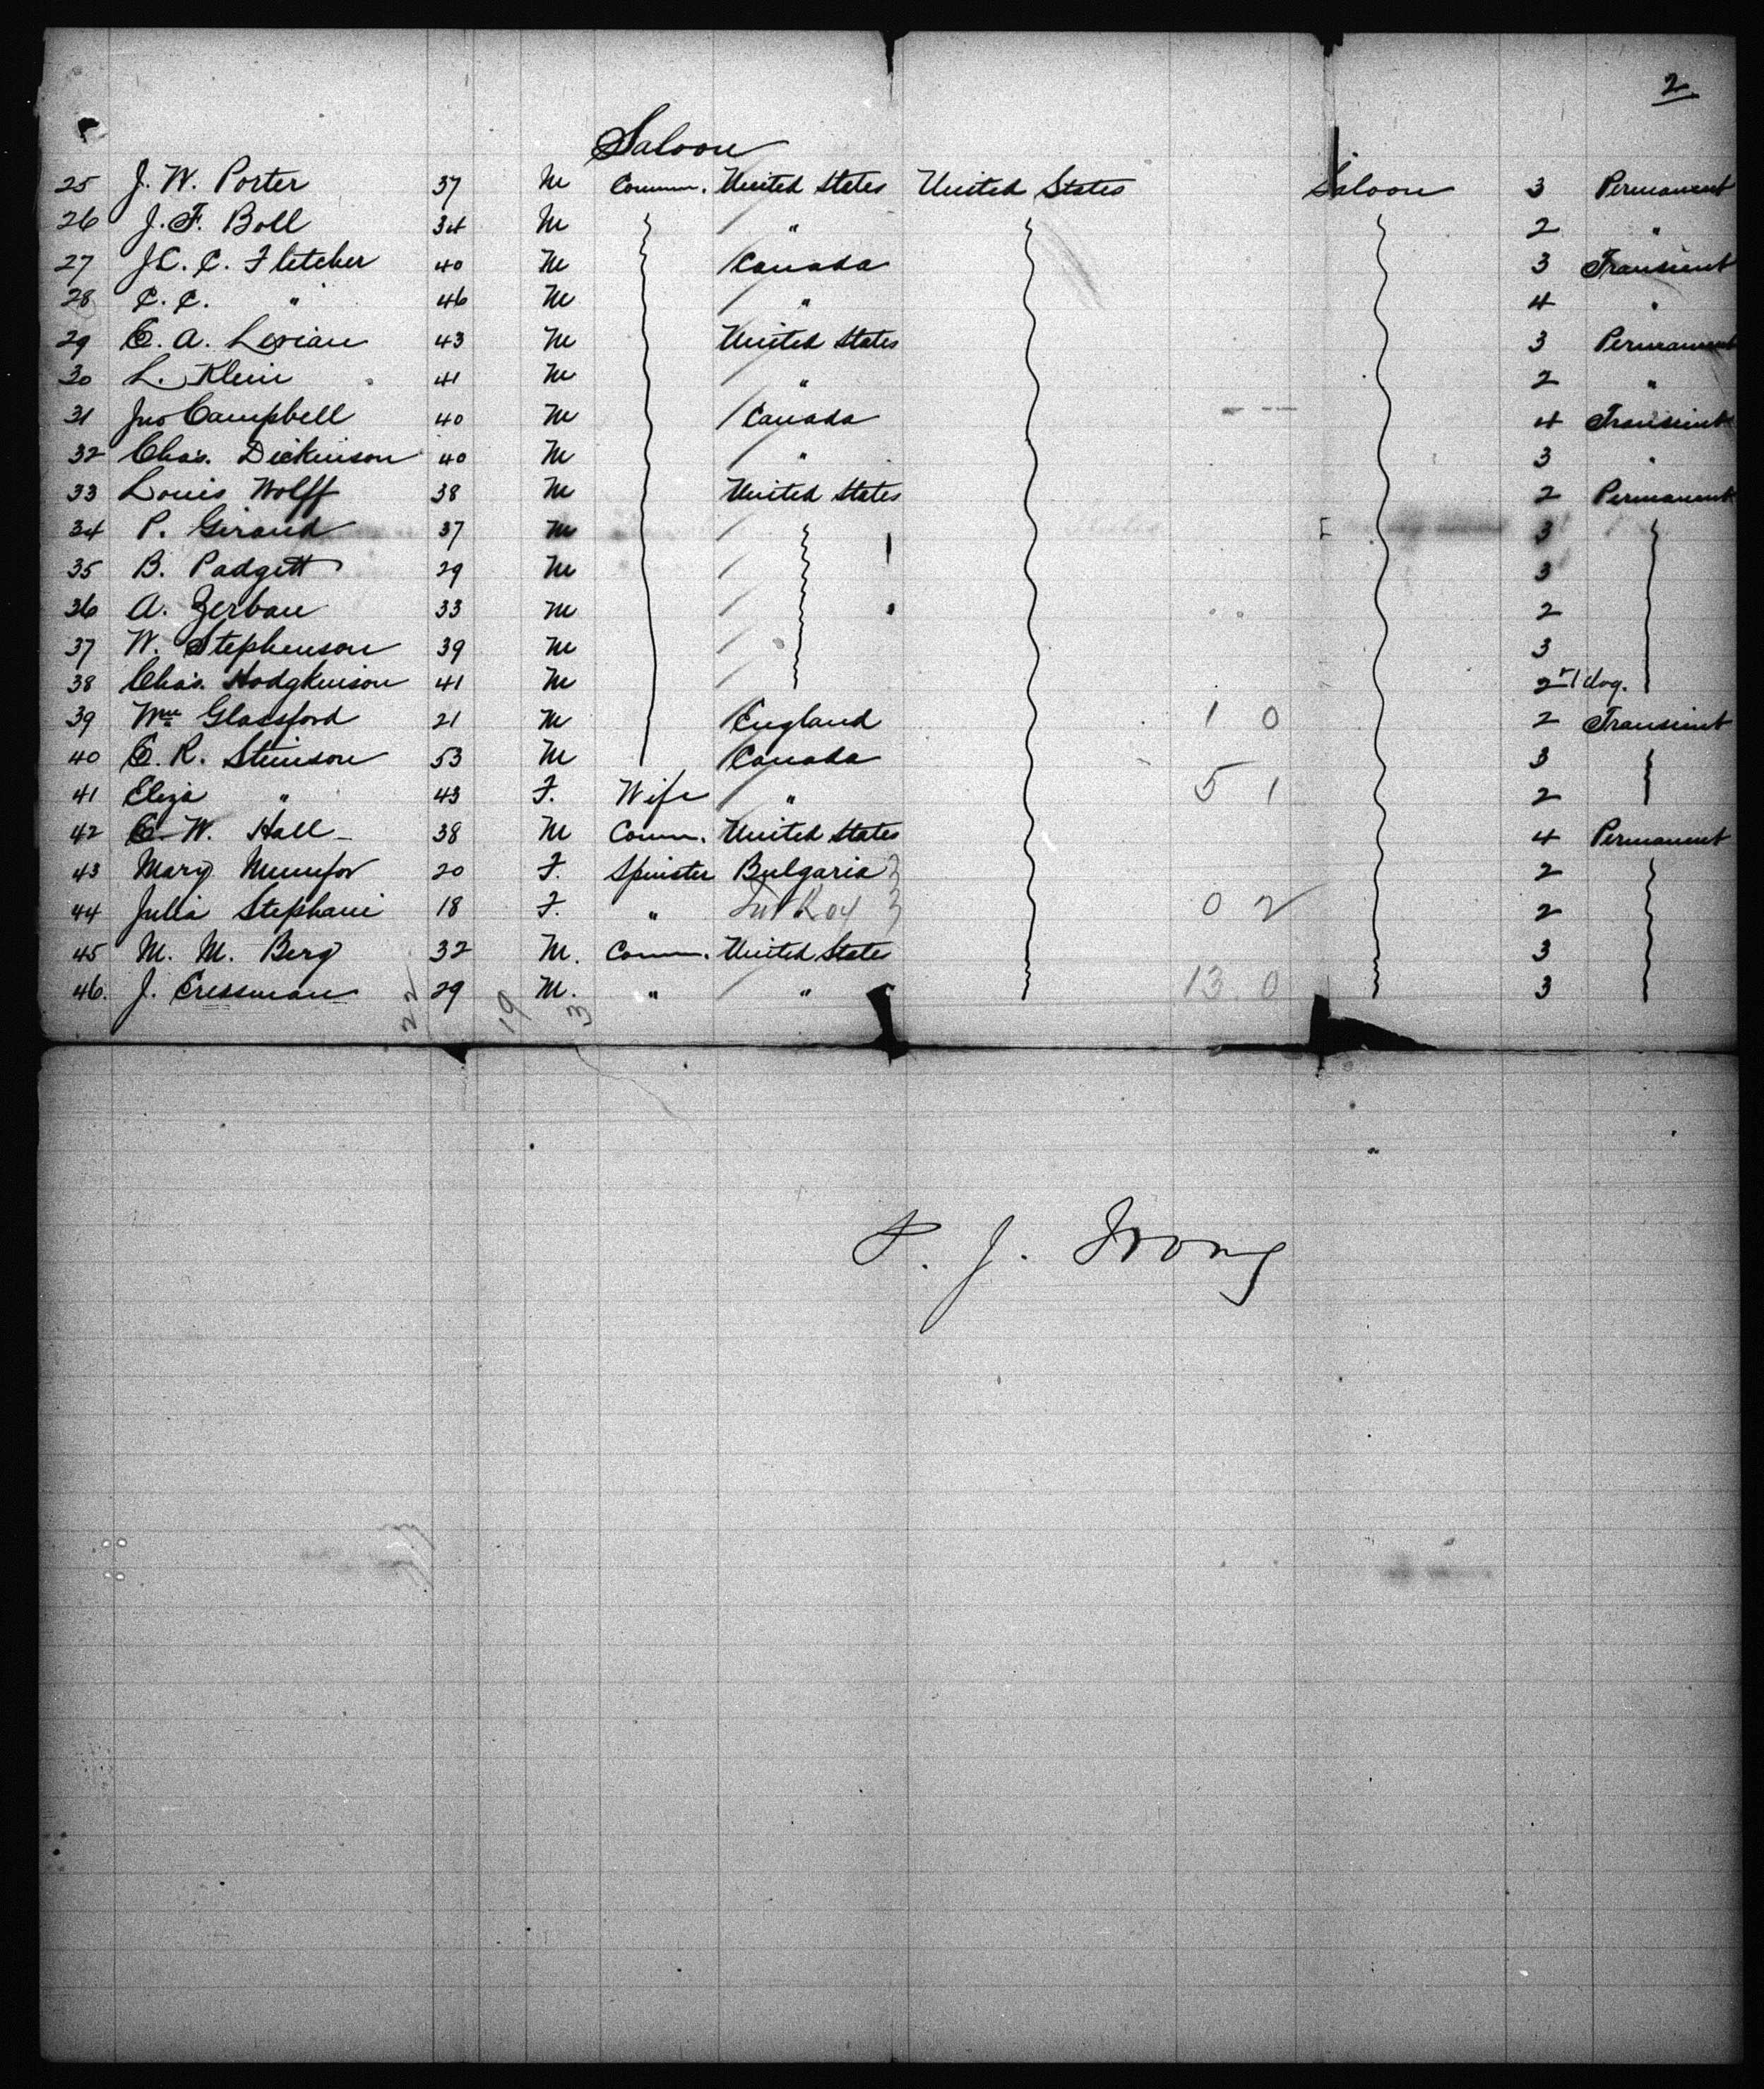 2
Saloon
25 J. W. Porter 37 M Comm. United States United States Saloon 3 Permanent
26 J. F. Boll 34 M " 2 "
27 C. Fletcher 40 M Canada 3 Transient
28 C. C. " 46 M " 4 "
29 A. 43 M United States 3 Permanent
30 L. Klein 41 M " 2 "
31 Jno Campbell 40 M Canada 4 Transient
32 Chas. Dickinson 40 M " 3 "
33 Louis Wolff 38 M United States 2 Permanent
34 P. Giraud 37 M 3
35 B. Padgett 29 M 3
36 A. Zerban 33 M 2
37 W. Stephenson 39 M 3
38 Chas. Hodgkinson 41 M 2 + 1 dog.
39 Wm Glassford 21 M England 1 0 2 Transient
40 R. Stimson 53 M Canada 3
41 Eliza " 43 F. Wife " 5 1 2
42 W. Hall 38 M Comm. United States 4 Permanent
43 Mary 20 F. Spinster Bulgaria 2
44 Julia Stephani 18 F. " 0 2 2
45 M. M. Berg 32 M. Comm. United State 3
46. J. Cressman 29 M. " " 13 0 3
22 19 3
J.